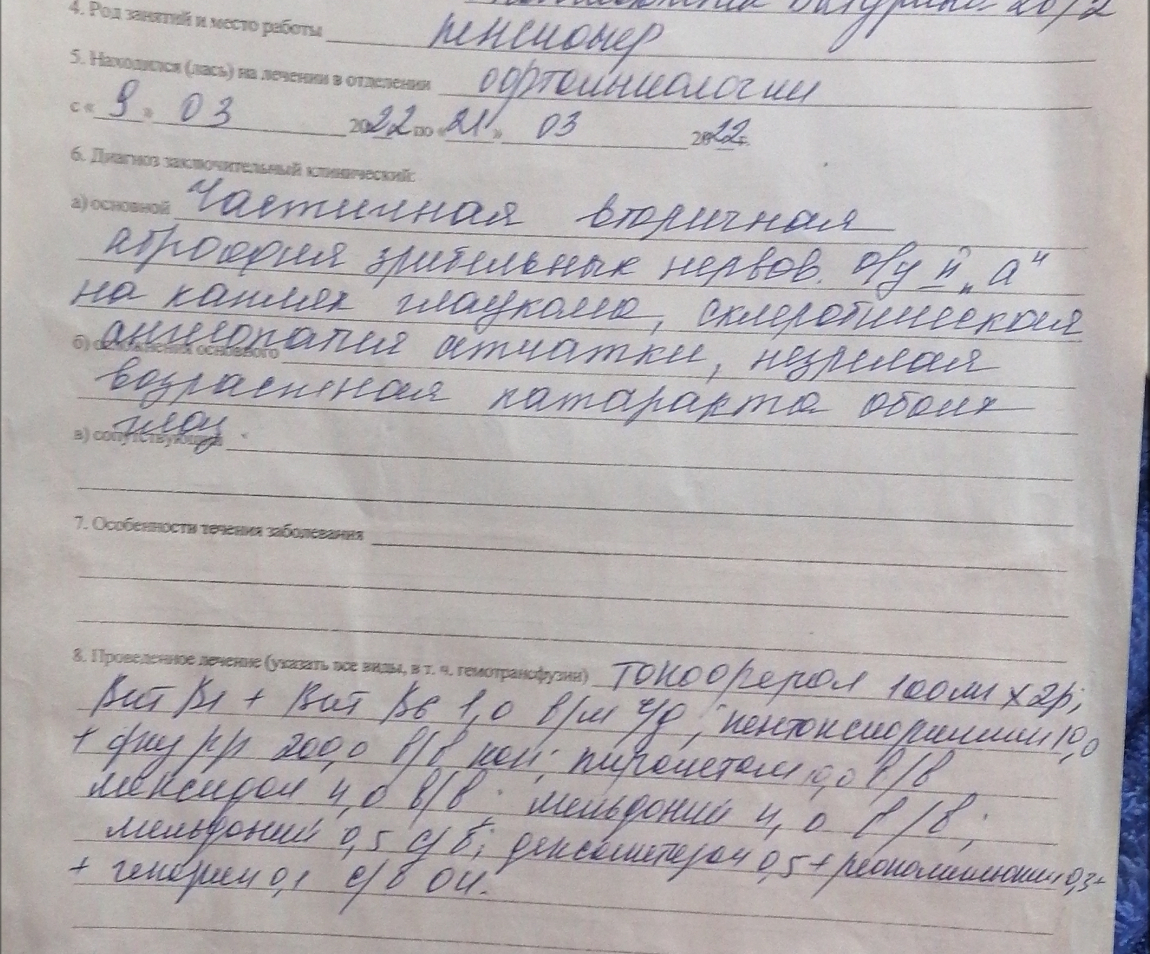 4. Род занятий и место работы пенсионер
5. Находился (лась) на лечении в отделении офтальмологии
с «9» 03 2022 по «21» 03 2022г.
6. Диагноз заключительный клинический:
а) основной Частичная вторичная
атрофия зрительных нервов. о/у II „а“
на каплях глаукома, склеротическая
ангиопатия сетчатки, незрелая
б) осложнения основного
возрастная катаракта обоих
глаз.
в) сопутствующий
7. Особенности течения заболевания
8. Проведенное лечение (указать все виды, в т. ч. гемотрансфузии) Токоферол 100мг х 2р;
Вит В1 + Вит В6 1,0 в/м ч/д; пентоксифиллин 10,0
+ физ р-р 200,0 в/в кап; пирацетам 10,0 в/в
мексидол 4,0 в/в; мельдоний 4,0 в/в;
мельдоний 0,5 п/б; дексаметазон 0,5 + реополиглюкин 0,3+
+ гепарин 0,1 с/в ОИ.